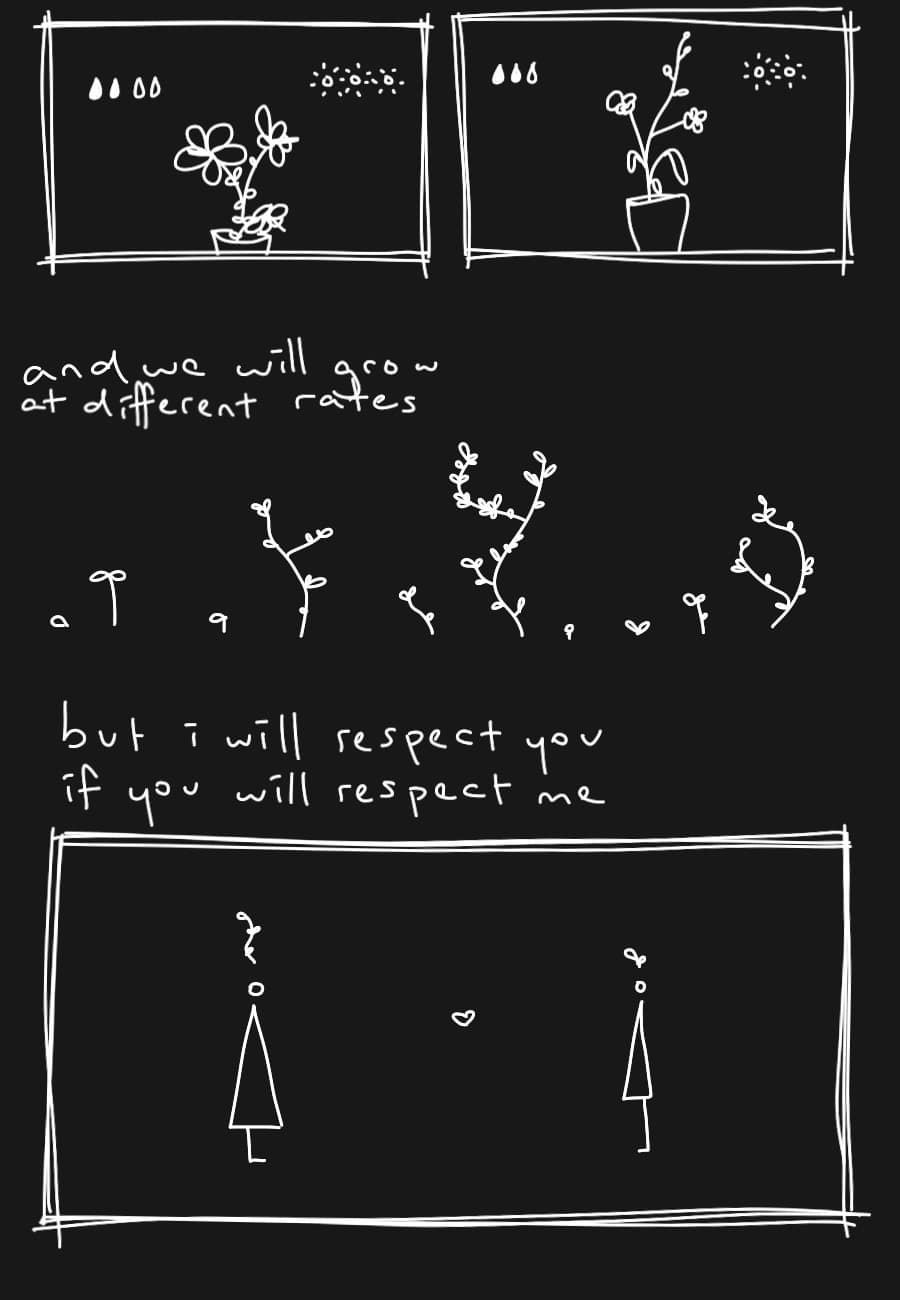 and we will grow
at different rates
but i will respect you
if you will respect me